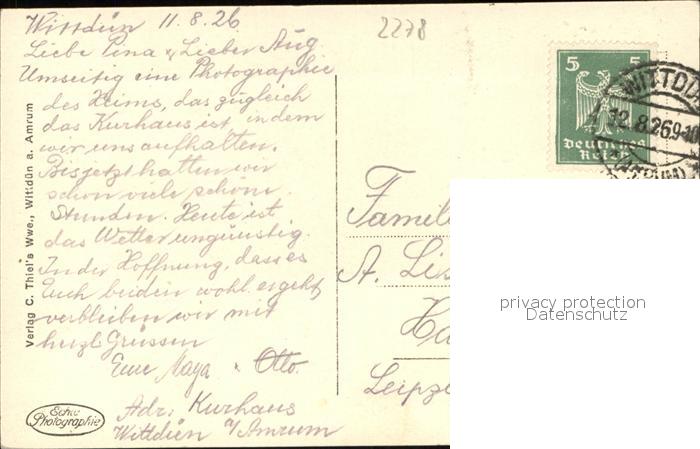 Wittdün 11.8.26
2278
Liebe Pina & Lieber Aug
Umseitig eine Photographie
des Heims, das zugleich
das Kurhaus ist, indem
wir uns aufhalten.
Bis jetzt hatten wir
schon viele schöne
Stunden. Heute ist
das Wetter ungünstig.
In der Hoffnung, dass es
Euch beiden wohl ergeht,
verbleiben wir mit
herzl. Grüssen
Eure Maya & Otto.
Adr: Kurhaus
Wittdün a/Amrum
Verlag C. Thiel's Wwe., Wittdün a. Amrum
Echte
Photographie
5 5
Deutsches
Reich
WITTDÜ
12.8.26.9-10
(AMRUM)
Famili
A. Lis
Ha
Leipz
privacy protection
Datenschutz